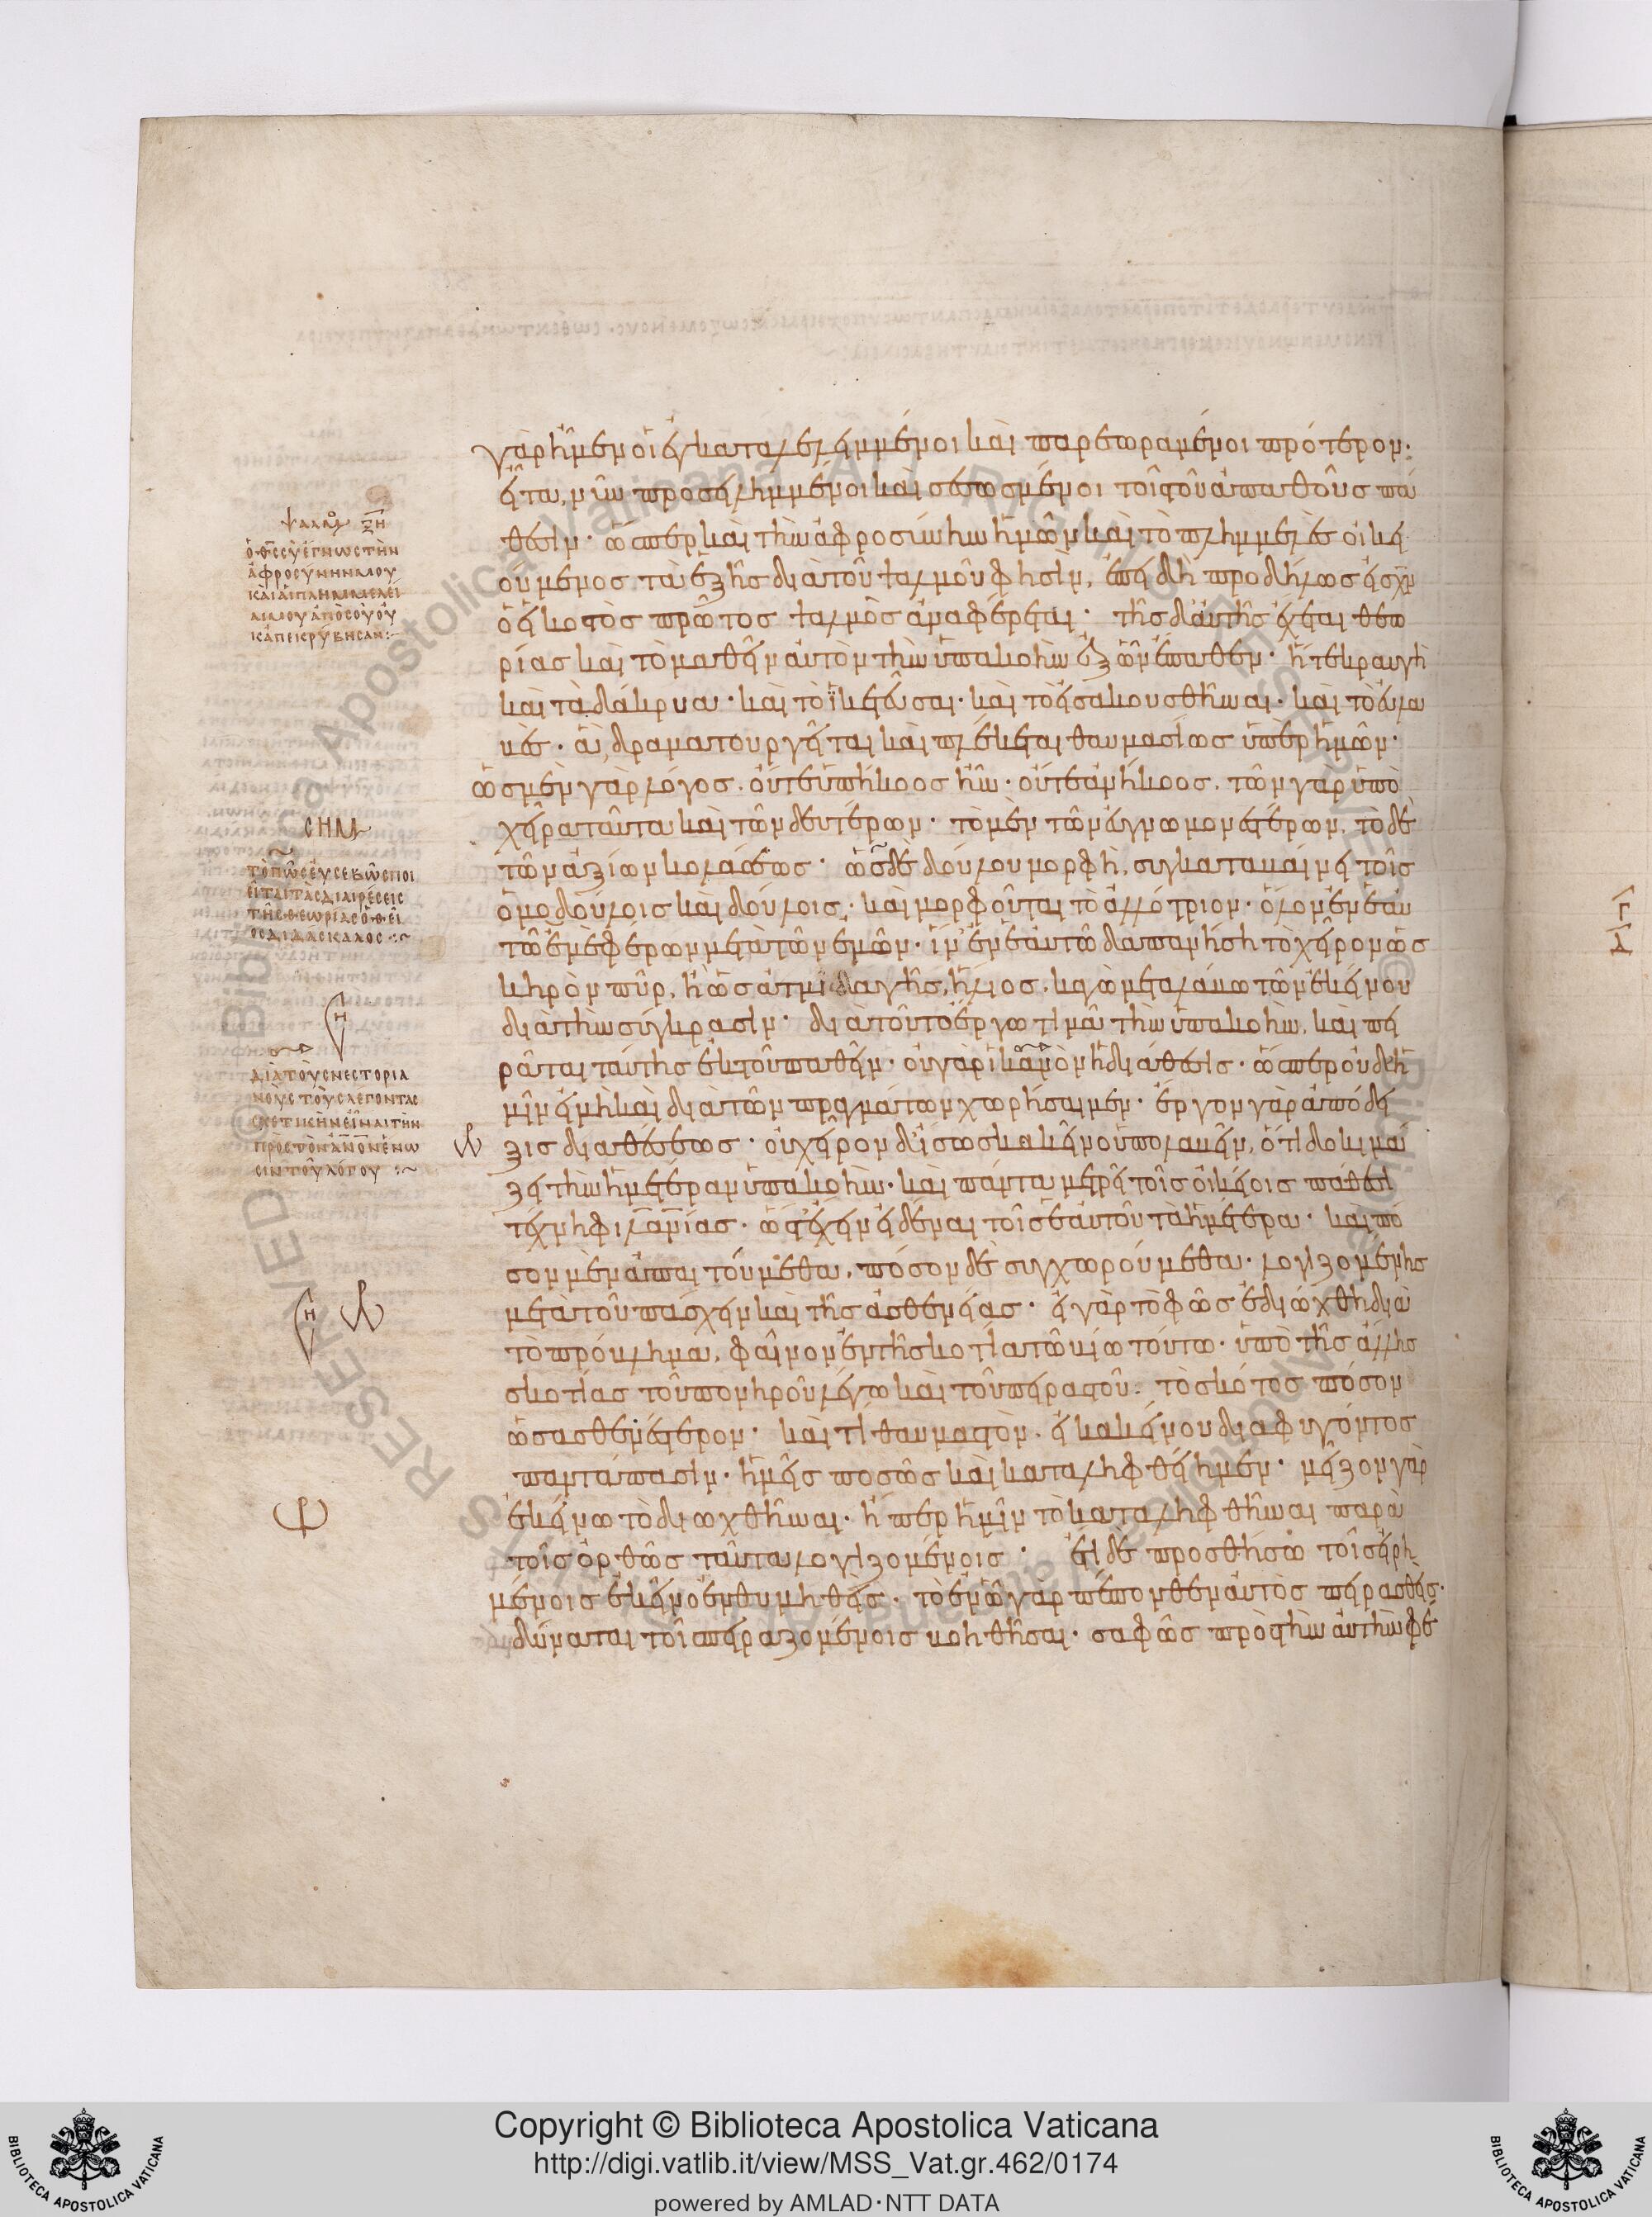 γὰρ ἦμεν οἱ ἐγκαταλελειμμένοι καὶ παρεωραμένοι πρότερον·
εἶτα νῦν προσειλημμένοι καὶ σεσωσμένοι τοῖς τοῦ ἀπαθοῦς πά
θεσιν· ὥσπερ καὶ τὴν ἀφροσύνην ἡμῶν καὶ τὸ πλημμελὲς οἰκει
ούμενος τὰ ἑξῆς διὰ τοῦ ψαλμοῦ φησὶν, ἐπειδὴ προδήλως εἰς χν
ὁ εἰκοστὸς πρῶτος ψαλμὸς ἀναφέρεται· τῆς δ' αὐτῆς ἔχεται θεω
ρίας καὶ τὸ μαθεῖν αὐτὸν τὴν ὑπακοὴν ἐξ ὧν ἔπαθεν· ἥ τε κραυγὴ
καὶ τὰ δάκρυα· καὶ τὸ ἱκετεῦσαι· καὶ τὸ εἰσακουσθῆναι· καὶ τὸ εὐλα
βές· ἃ δραματουργεῖται καὶ πλέκεται θαυμασίως ὑπὲρ ἡμῶν·
ὡς μὲν γὰρ λόγος, οὔτε ὑπήκοος ἦν· οὔτε ἀνήκοος, τῶν γὰρ ὑπὸ
χεῖρα ταῦτα καὶ τῶν δευτέρων· τὸ μὲν τῶν εὐγνωμονετέρων, τὸ δὲ
τῶν ἀξίων κολάσεως· ὡς δὲ δούλου μορφὴ, συγκαταβαίνει τοῖς
ὁμοδούλοις καὶ δούλοις· καὶ μορφοῦται τὸ ἀλλότριον· ὅλον ἐν ἑαυ
τῶ ἐμὲ φέρων μετὰ τῶν ἐμῶν· ἵν' ἐν ἑαυτῶ δαπανήση τὸ χεῖρον ὡς
κηρὸν πῦρ, ἢ ὡς ἀτμίδα γῆς, ἥλιος, καγὼ μεταλάβω τῶν ἐκείνου
διὰ τὴν σύγκρασιν· διὰ τοῦτο ἔργω τιμᾶ τὴν ὑπακοὴν, καὶ πει
ρᾶται ταύτης ἐκ τοῦ παθεῖν· οὐ γὰρ ἱκανὸν ἡ διάθεσις· ὥσπερ οὐδὲ ἡ
μῖν εἰ μὴ καὶ διὰ τῶν πραγμάτων χωρήσαιμεν· ἔργον γὰρ ἀπόδει
ξις διαθέσεως· οὐ χεῖρον δὲ ἴσως κακεῖνο ὑπολαβεῖν, ὅτι δοκιμά
ζει τὴν ἡμετέραν ὑπακοὴν· καὶ πάντα μετρεῖ τοῖς οἰκείοις πάθεσι
τέχνη φιλανίας· ὥστε ἔχειν εἰδέναι τοῖς ἑαυτοῦ τὰ ἡμέτερα· καὶ πό
σον μὲν ἀπαιτούμεθα, πόσον δὲ συγχωρούμεθα· λογιζομένης
μετὰ τοῦ πάσχειν καὶ τῆς ἀσθενείας· εἰ γὰρ τὸ φῶς ἐδιώχθη διὰ
τὸ πρόβλημα, φαῖνον ἐν τῆ σκοτία τῶ βίω τούτω· ὑπὸ τῆς ἄλλης
σκοτίας τοῦ πονηροῦ λέγω καὶ τοῦ πειραστοῦ· τὸ σκότος πόσον
ὡς ἀσθενέστερον· καὶ τί θαυμαστὸν, εἰ κακείνου διαφυγόντος
παντάπασιν· ἡμεῖς ποσῶς καὶ καταληφθείημεν· μεῖζον γὰρ
ἐκείνω τὸ διωχθῆναι· ἥπερ ἡμῖν τὸ καταληφθῆναι παρὰ
τοῖς ὀρθῶς ταῦτα λογιζομένοις· ἔτι δὲ προσθήσω τοῖς εἰρη
μένοις ἐκεῖνο ἐνθυμηθεὶς· τὸ ἐν ᾧ γὰρ πέπονθεν αὐτὸς πειρασθείς·
δύναται τοῖς πειραζομένοις βοηθῆσαι· σαφῶς πρὸς τὴν αὐτὴν φέ
ψαλμ ξη
ὁ θς σὺ ἔγνως τὴν
ἀφροσύνην μου
καὶ αἱ πλημμελεῖ
αι μου ἀπὸ σοῦ οὐ
κ ἀπεκρύβησαν:~
σημ
τὸ πῶς εὐσεβῶς ποι
εῖται τὰς διαιρέσεις
τῆς θεωρίας ὁ θεῖ
ος διδάσκαλος:~
διὰ τοὺς νεστορια
νοὺς τοὺς λέγοντας
σχετικὴν εἶναι τὴν
πρὸς τὸν ανον ἕνω
σιν τοῦ λόγου:~
RESERVED © Biblioteca Apostolica Vaticana
Copyright © Biblioteca Apostolica Vaticana
http://digi.vatlib.it/view/MSS_Vat.gr.462/0174
powered by AMLAD·NTT DATA
BIBLIOTECA APOSTOLICA VATICANA
BIBLIOTECA APOSTOLICA VATICANA